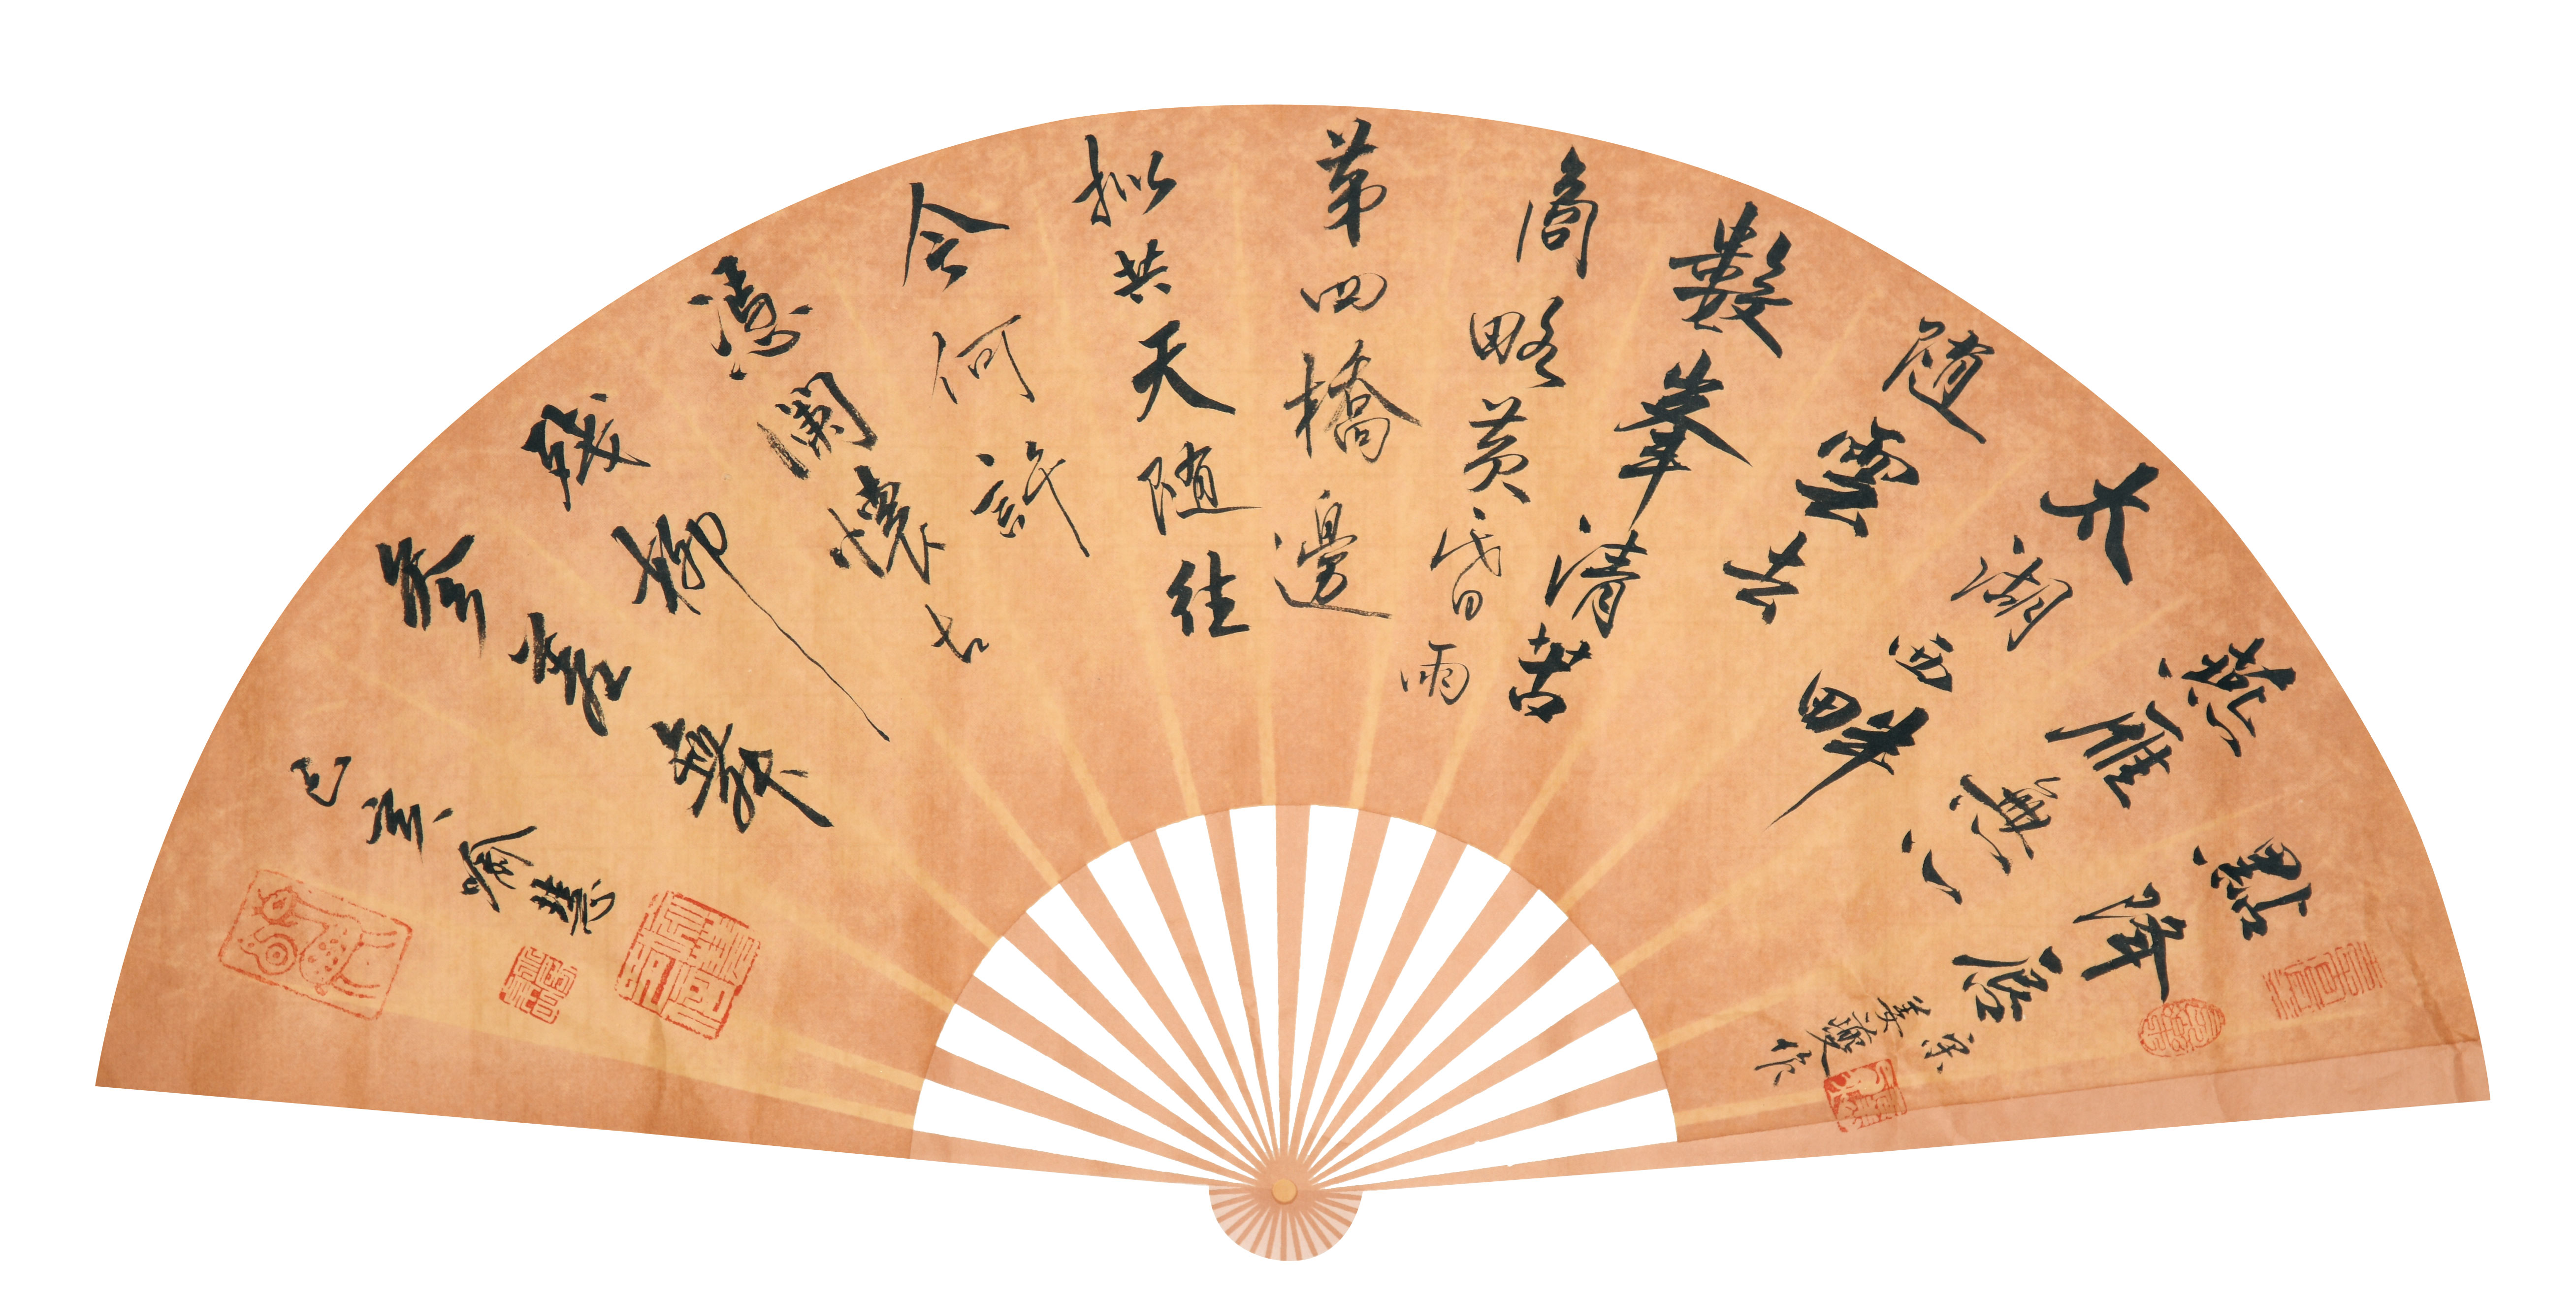 點降唇
宋
姜夔作
燕雁無心
太湖西畔
随雲去
數峯清苦
商略黃昏雨
第四橋邊
拟共天随往
今何許
憑闌懷古
殘柳
參差舞
己亥喻慧